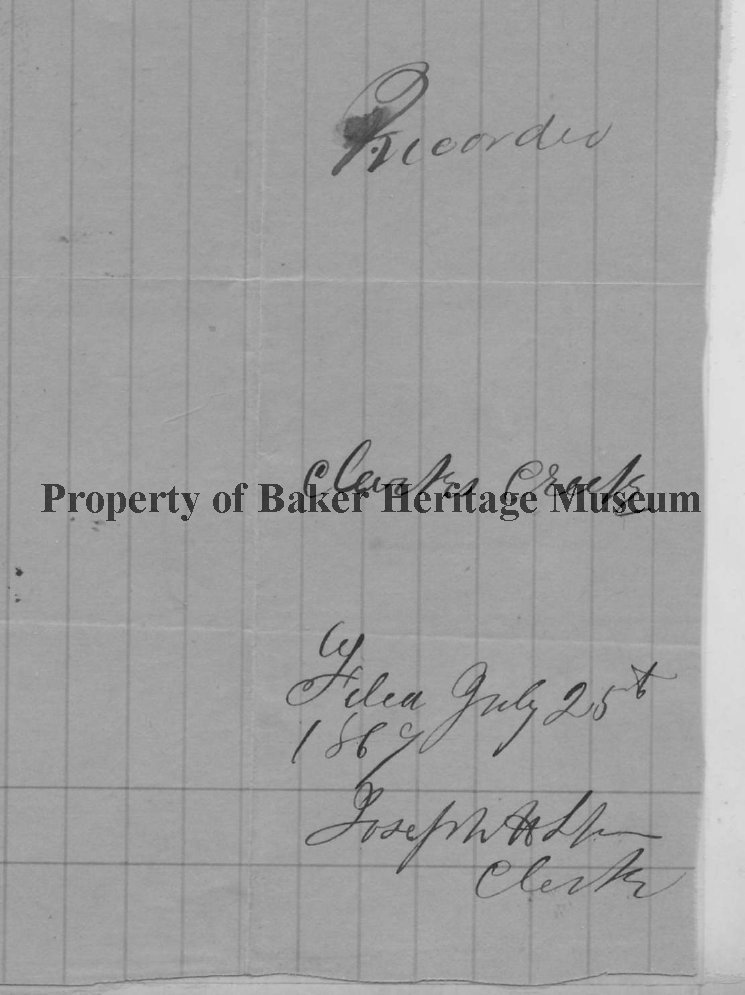 Recorded
Clarks Creek
Property of Baker Heritage Museum
Filed July 25t
1867
Joseph H
Clerk